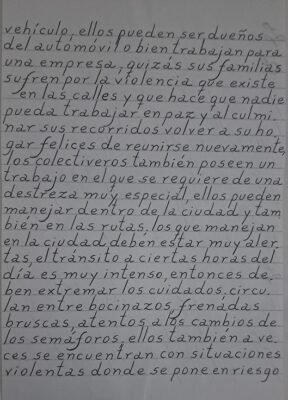 vehículo, ellos pueden ser dueños
del automóvil o bien trabajan para
una empresa, quizás sus familias
sufren por la violencia que existe
en las calles y que hace que nadie
pueda trabajar en paz y al culmi
nar sus recorridos volver a su ho,
gar felices de reunirse nuevamente,
los colectiveros también poseen un
trabajo en el que se requiere de una
destreza muy especial, ellos pueden
manejar dentro de la ciudad y tam
bién en las rutas, los que manejan
en la ciudad deben estar muy aler
tas, el tránsito a ciertas horas del
día es muy intenso, entonces de,
ben extremar los cuidados, circu,
lan entre bocinazos, frenadas
bruscas, atentos a los cambios de
los semáforos, ellos también a ve,
ces se encuentran con situaciones
violentas donde se pone en riesgo